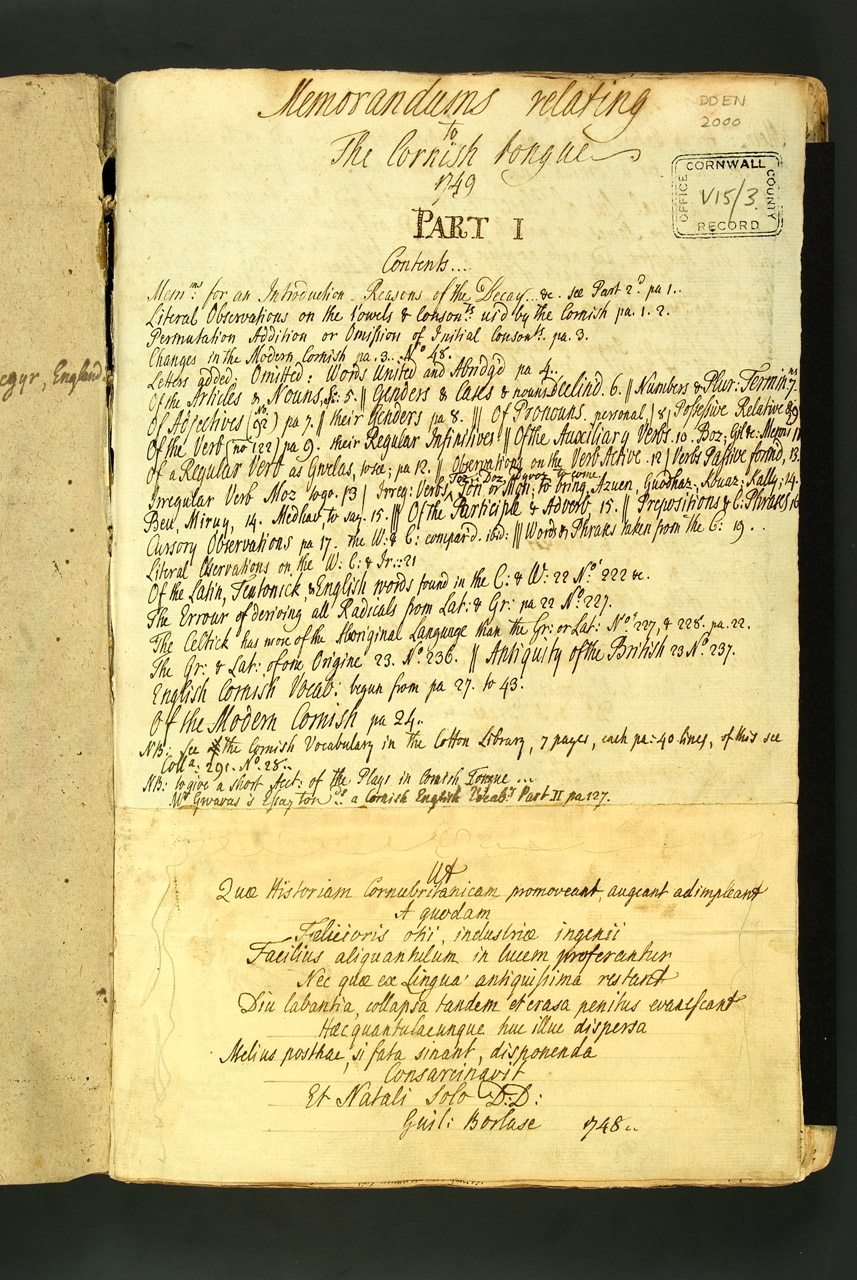 Memorandums relating
to
The Cornish tongue
1749
PART I
Contents...
DDEN
2000
CORNWALL
OFFICE
V15/3
COUNTY
RECORD
egyr, England
Mem:ms for an Introduction. Reasons of the Decay... &c. see Part 2d pa 1..
Literal Observations on the Vowels & Consonts us'd by the Cornish pa. 1. 2.
Permutation Addition or Omission of Initial Consonts. pa. 3.
Changes in the Modern Cornish pa. 3... No 48.
Letters added, Omitted: Words United and Abridg'd pa 4..
Of the Articles & Nouns, &c: 5. || Genders & Cases & nouns Declind. 6. || Numbers & Plur: Termin:ns 7.
Of Adjectives (No 92) pa 7. || their Genders pa 8. || Of Pronouns. personal, 8; Possessive Relative &c 9
Of the Verb (no 122) pa 9. their Regular Infinitives || Of the Auxiliary Verbs. 10. Boz; Gil &c: Menni 11
Of a Regular Verb as Gwelas, to see; pa 12. || Observations on the Verb Active. 12 | Verbs Passive form'd, 13.
Irregular Verb Moz to go. 13 | Irreg: Verbs, Toz: Doz, to come Dri or Mgri; to bring, Azuen, Guodhaz; Kouaz; Kally; 14.
Ben, Miruy, 14. Medhav to say. 15. || Of the Participle & Adverb 15. || Prepositions & C: Phrases, 16
Cursory Observations pa 17. the W: & C: compar'd. ibid: || Words & Phrases taken from the C: 19 . .
Literal Oservations on the W: C: & Ir:: 21
Of the Latin, Teutonick, & English words found in the C: & W: 22 Nos 222 &c.
The Errour of deriving all Radicals from Lat: & Gr: pa 22 No 227.
The Celtick has more of the Aboriginal Language than the Gr: or Lat: Nos 227, & 228. pa. 22.
The Gr: & Lat: of one Origine 23. No 236. || Antiquity of the British 23 No 237.
English Cornish Vocab: begun from pa 27. to 43.
Of the Modern Cornish pa 24..
NB: see the Cornish Vocabulary in the Cotton Library, 7 pages, each pa: 40 lines, of this see
Colla: 291. No. 28..
NB: to give a short Acct: of the Plays in Cornish Tongue ...
Mr Gwavas's Essay tords a Cornish English Vocaby Part II pa 127.
Ut
Quæ Historiam Cornubritanicam promoveant, augeant adimpleant
A quodam
Felicioris otii, industriæ ingenii
Facilius aliquantulum in lucem proferantur
Nec quæ ex Lingua antiquissima restant
Diu labantia, collapsa tandem et erasa penitus evanescant
Hæc quantulacunque huc illuc dispersa
Melius posthac, si fata sinant, disponenda
Consarcinavit
Et Natali Solo D.D:
Guil: Borlase 1748..